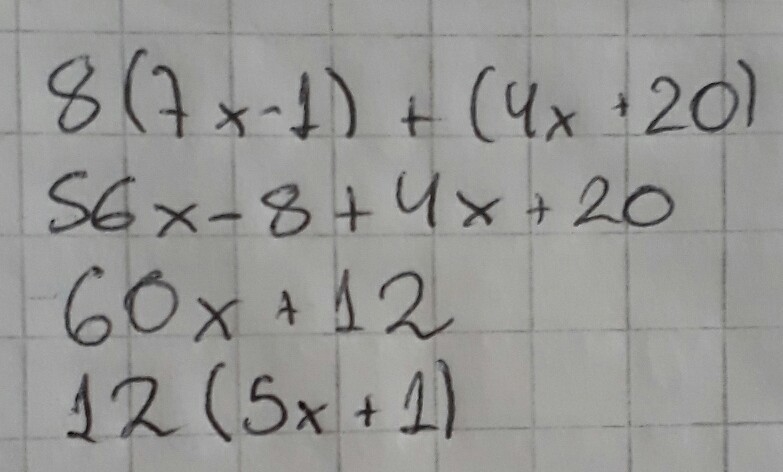 8(7x-1) + (4x +20)
56x-8+4x+20
60x + 12
12 (5x+1)